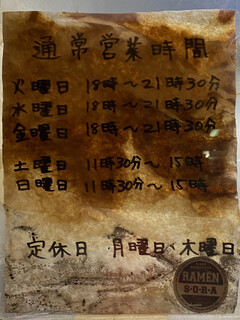 通常営業時間
火曜日 18時〜21時30分
水曜日 18時〜21時30分
金曜日 18時〜21時30分
土曜日 11時30分〜15時
日曜日 11時30分〜15時
定休日 月曜日、木曜日
RAMEN
S・O・R・A